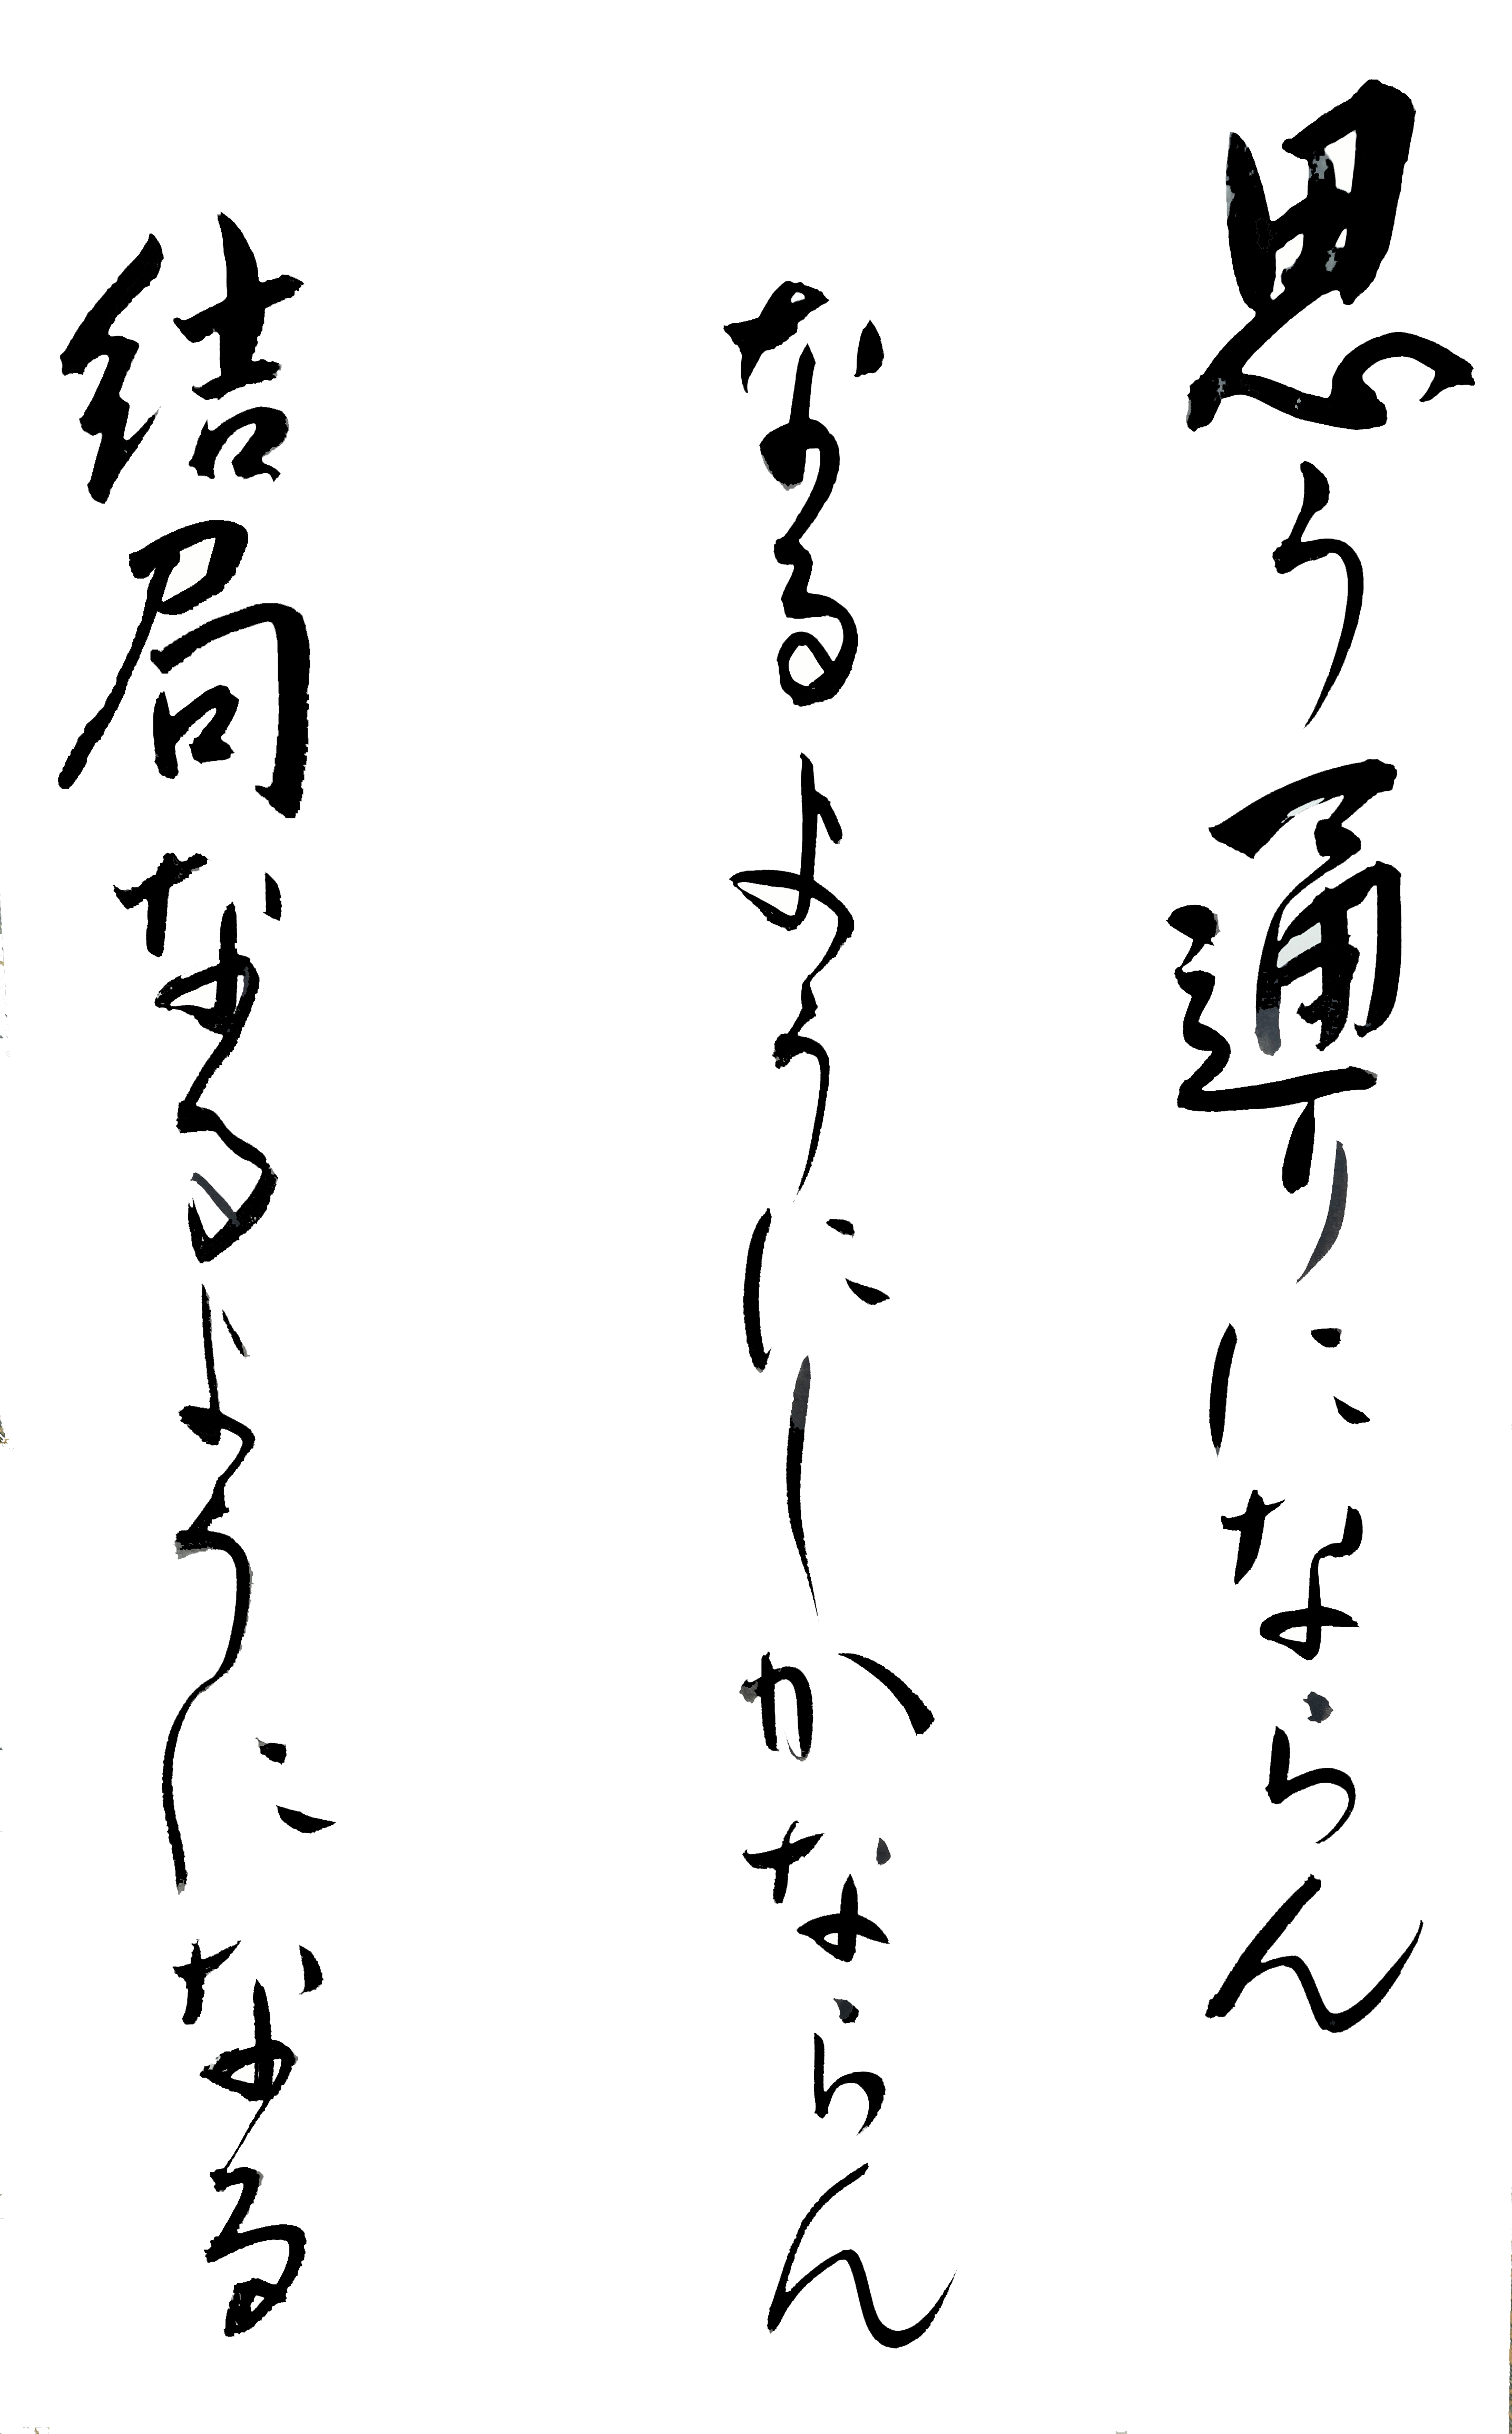 思う通りにならん
なるようにしかならん
結局なるようになる